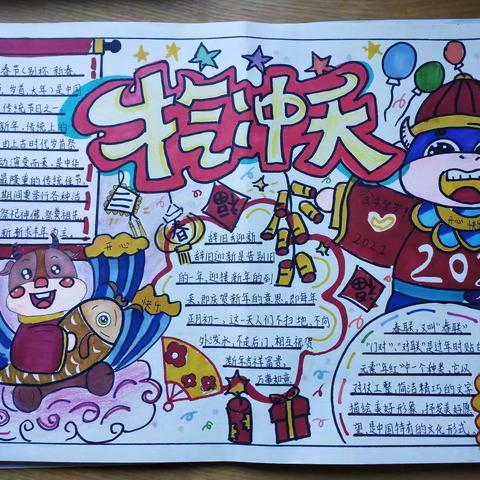 牛气冲天
春节(别称:新春
、岁首、大年)是中国
传统节日之一
新年,传统上的
由上古时代岁首祭
动演变而来,是中华
最隆重的传统佳节
期间要举行各种活
开心
快乐
春
福
辞旧岁迎新
辞旧迎新是告别旧
的一年,迎接新年的到
来,即庆贺新年的意思,即每年
正月初一,这一天人们不扫地、不向
外泼水、不走后门,相互祝贺
新年吉祥富贵,
万事如意
2021
开心
202
福
春联,又叫“春联”
“门对”、“对联”是过年时贴
元素“年红”中一个种类,它以
对仗工整,简洁精巧的文字
描绘美好形象,抒发美好愿
望,是中国特有的文化形式